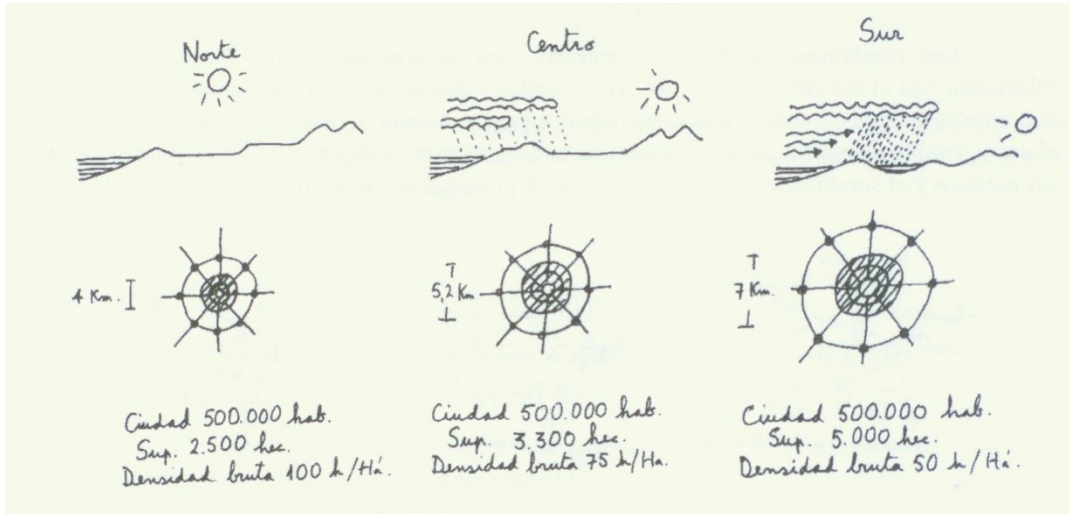 Norte
4 Km.
Ciudad 500.000 hab.
Sup. 2.500 hec.
Densidad bruta 100 h/Há.
Centro
5,2 Km
Ciudad 500.000 hab.
Sup. 3.300 hec.
Densidad bruta 75 h/Ha.
Sur
7 Km.
Ciudad 500.000 hab.
Sup. 5.000 hec.
Densidad bruta 50 h/Há.